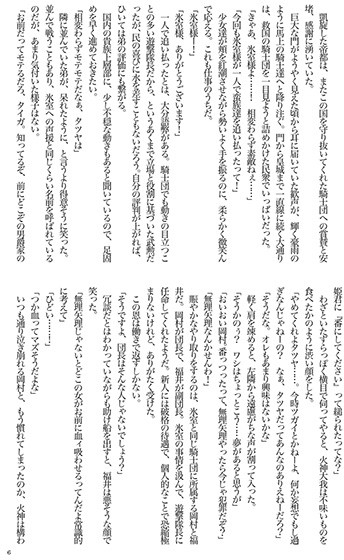 凱旋した帝都は、またこの国を守り抜いてくれた騎士団への賞賛と安
堵、感謝に湧いていた。
巨大な門がようやく見えた頃から耳に届いていた歓声が、輝く豪雨の
ように馬上の騎士達へと降り注ぐ。門から皇城まで一直線に続く大通り
は、救国の騎士団を一目見ようと詰めかけた民衆でいっぱいだった。
「きゃあ、氷室様よ……！　相変わらず素敵ねぇ……！」
「今回も氷室様が一人で斎藤達を追い払ったって！」
少女達が頬を紅潮させながら勢いよく手を振るのに、柔らかく微笑ん
で応える。これも仕事のうちだ。
「氷室様ー！」
「氷室様、ありがとうございます！」
一人で追い払ったとは、大分語弊がある。騎士団でも動きの目立つこ
との多い遊撃隊長だから、というあくまで立場と役割に基づいた武勲だ
ったが、民の賛辞に水を差すこともないだろう。自分の評判が上がれば、
ひいては弟の評価にも繋がる。
国内の貴族上層部に、少し不穏な動きもあると聞いているので、足固
めを早く進めておきたい。
「相変わらずモテるな、タツヤは」
隣に並んでいた弟が、呆れたように、と言うより得意そうに笑った。
並んで戦うこともあり、氷室への声援と同じくらい名前を呼ばれている
のだが、あまり気付いた様子はない。
「お前だってモテるだろ、タイガ。知ってるぞ、前にどこぞの男爵家の
姫君に〝番にしてください〟って縋られたってな？」
わざといたずらっぽく横目で伺ってやると、火神大我は不味いものを
食べたかのように渋い顔をした。
「やめてくれよタツヤ……。今時ツガイとかねーよ、何か妄想でもし過
ぎなんじゃねーの？　なぁ、タツヤだってあんなのありえねーだろ？」
「そうだな。オレもあまり興味はないかな」
軽く肩を竦めると、左隣から遠慮がちな声が割って入った。
「そうかのう？　ワシはちょっとこう……夢があると思うが」
「おいおい岡村、番っつったって無理矢理やったら今じゃ犯罪だぞう」
「無理矢理なんかせんわ！」
賑やかなやり取りをするのは、氷室と同じ騎士団に所属する岡村と福
井だ。岡村が団長で、福井が副団長。氷室の事情を汲んで、遊撃隊長に
任命してくれたようだ。新人には破格の待遇で、個人的なことで恐縮極
まりないけれど、ありがたく受けた。
この恩は働きで返すしかない。
「そうですよ、団長はそんな人じゃないでしょう？」
冗談だとはわかっていながらも助け船を出すと、福井は悪そうな顔で
笑った。
「無理矢理じゃないとどこの女がお前に血ィ吸わせるってんだよ常識的
に考えて」
「ひどい……！」
「つか血ってマズそうだよな」
いつも通り泣き崩れる岡村と、もう慣れてしまったのか、火神は構わ
6